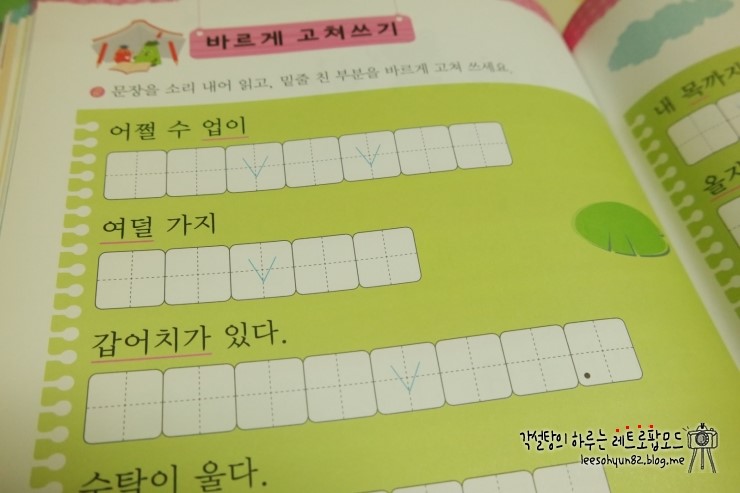 바르게 고쳐쓰기
문장을 소리 내어 읽고, 밑줄 친 부분을 바르게 고쳐 쓰세요.
어쩔 수 업이
여덜 가지
갑어치가 있다.
수탁이 울다.
내 목까지
올
각설탕의 하루는 레트로팝모드
leesohyun82.blog.me